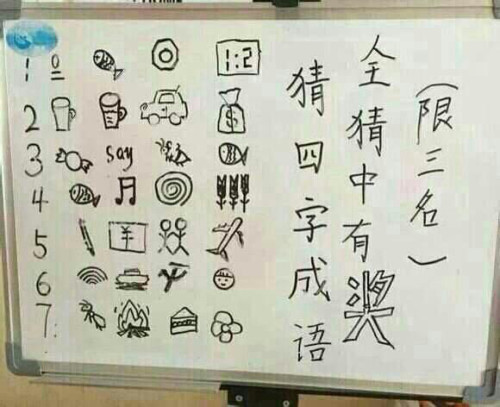 （限三名）
全猜中有奖
猜四字成语
1 1:2
2 $
3 say
4
5 ¥
6
7: